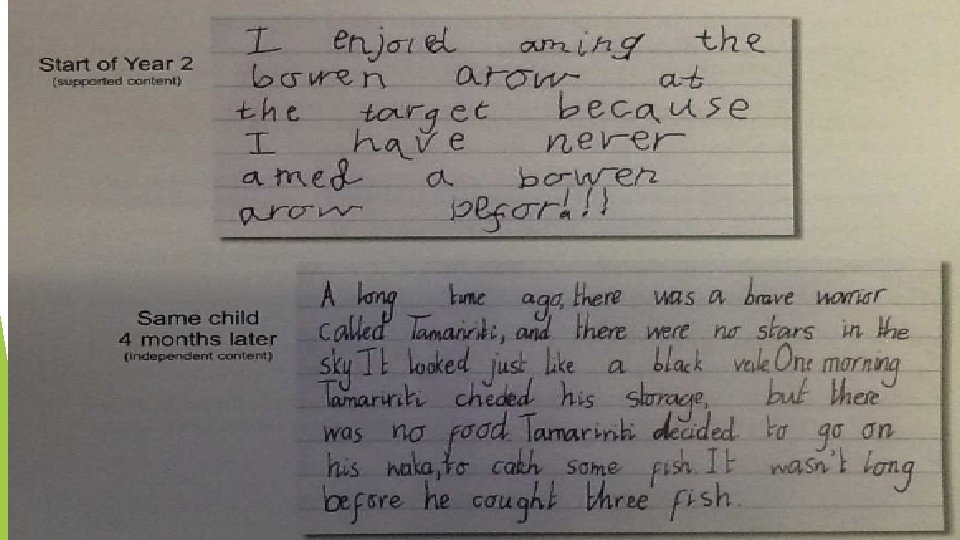 Start of Year 2
(supported content)
I enjoied aming the
bowen arow at
the target because
I have never
amed a bowen
arow befor!!!
Same child
4 months later
(independent content)
A long time ago, there was a brave warrior
called Tamaririti, and there were no stars in the
sky It looked just like a black veile One morning
Tamaririti checked his storage, but there
was no food. Tamaririti decided to go on
his waka, to catch some fish. It wasn't long
before he cought three fish.